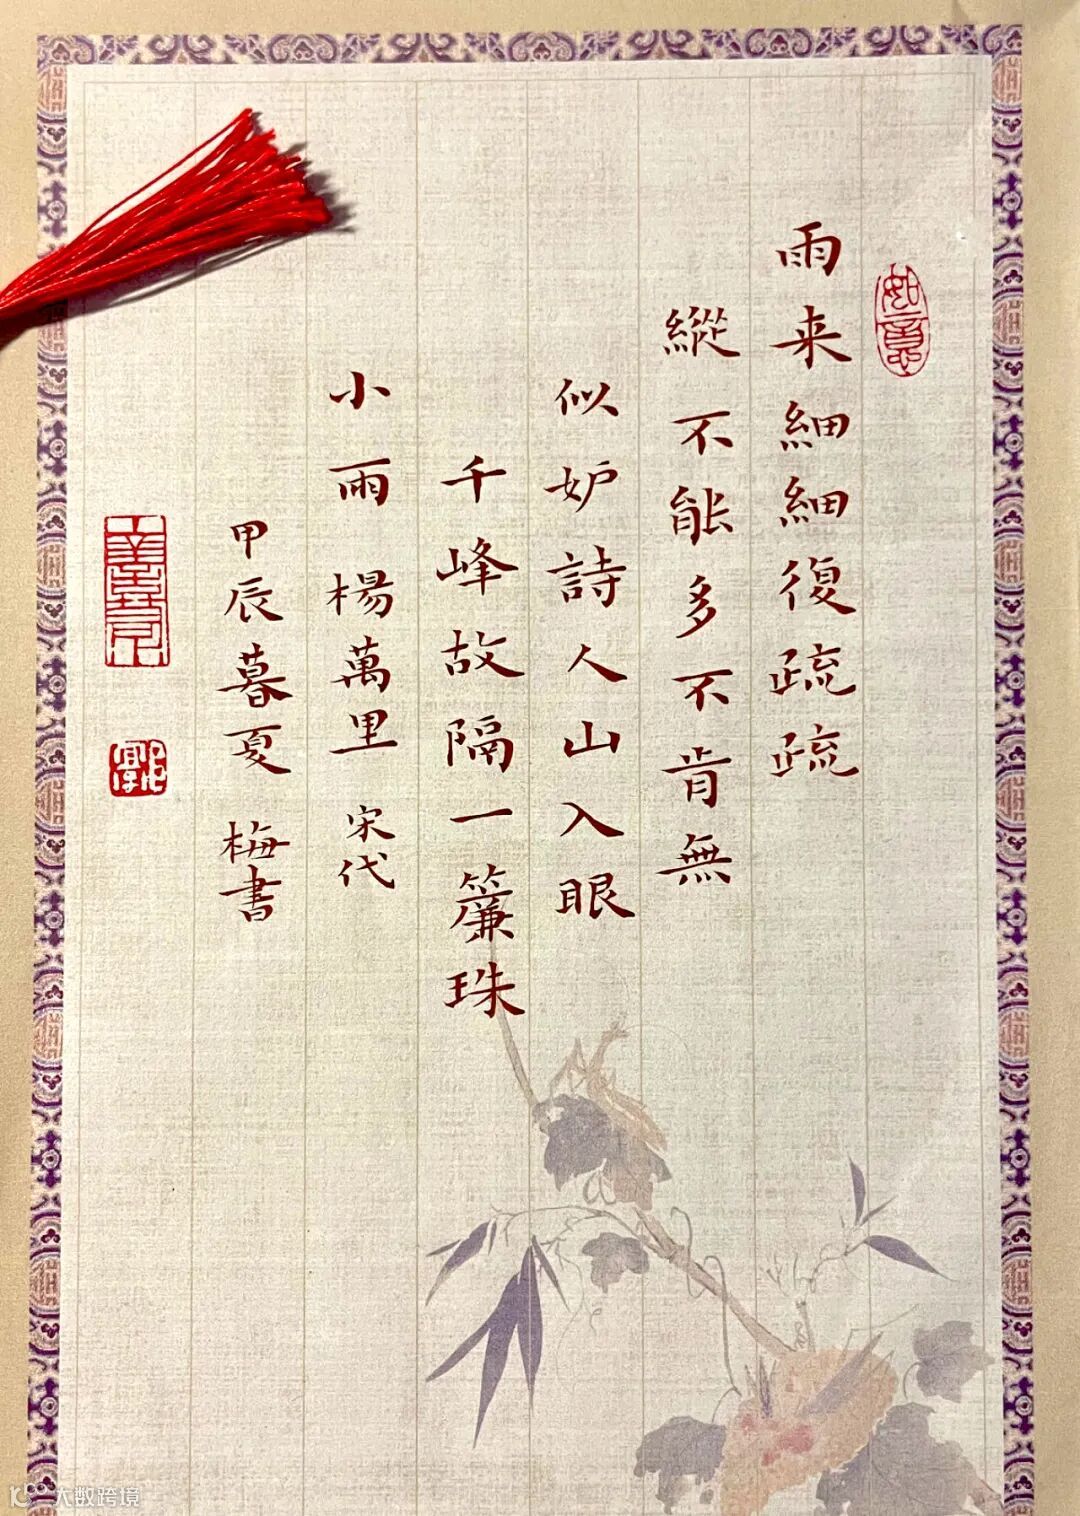 如意
雨来細細復疏疏
縱不能多不肯無
似妒詩人山入眼
千峰故隔一簾珠
小雨 楊萬里 宋代
甲辰暮夏 梅書
大数跨境